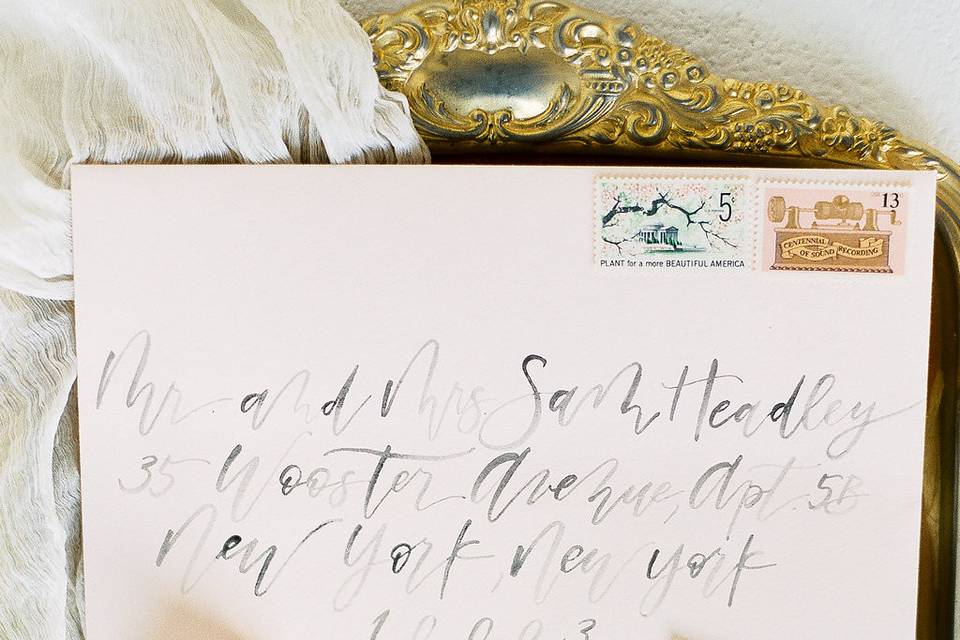 5¢
PLANT for a more BEAUTIFUL AMERICA
USA 13
CENTENNIAL OF SOUND RECORDING
Mr and Mrs. Sam Headley
35 Wooster Avenue, Apt. 5B
New York, New York